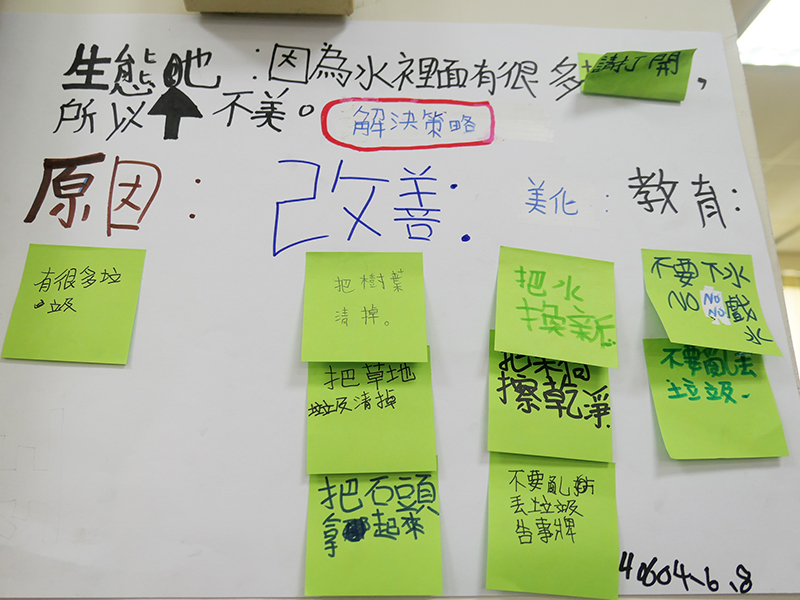 生態池：因為水裡面有很多請打開，
所以 不美。
解決策略
原因：
改善：
美化：
教育：
有很多垃
圾
把樹葉
清掉。
把草地
垃圾清掉
把石頭
拿起來
把水
換新
擦乾淨
不要亂
丟垃圾
告事牌
不要下水
NO NO NO 戲
水
不要亂丟
垃圾.
40604、6、8